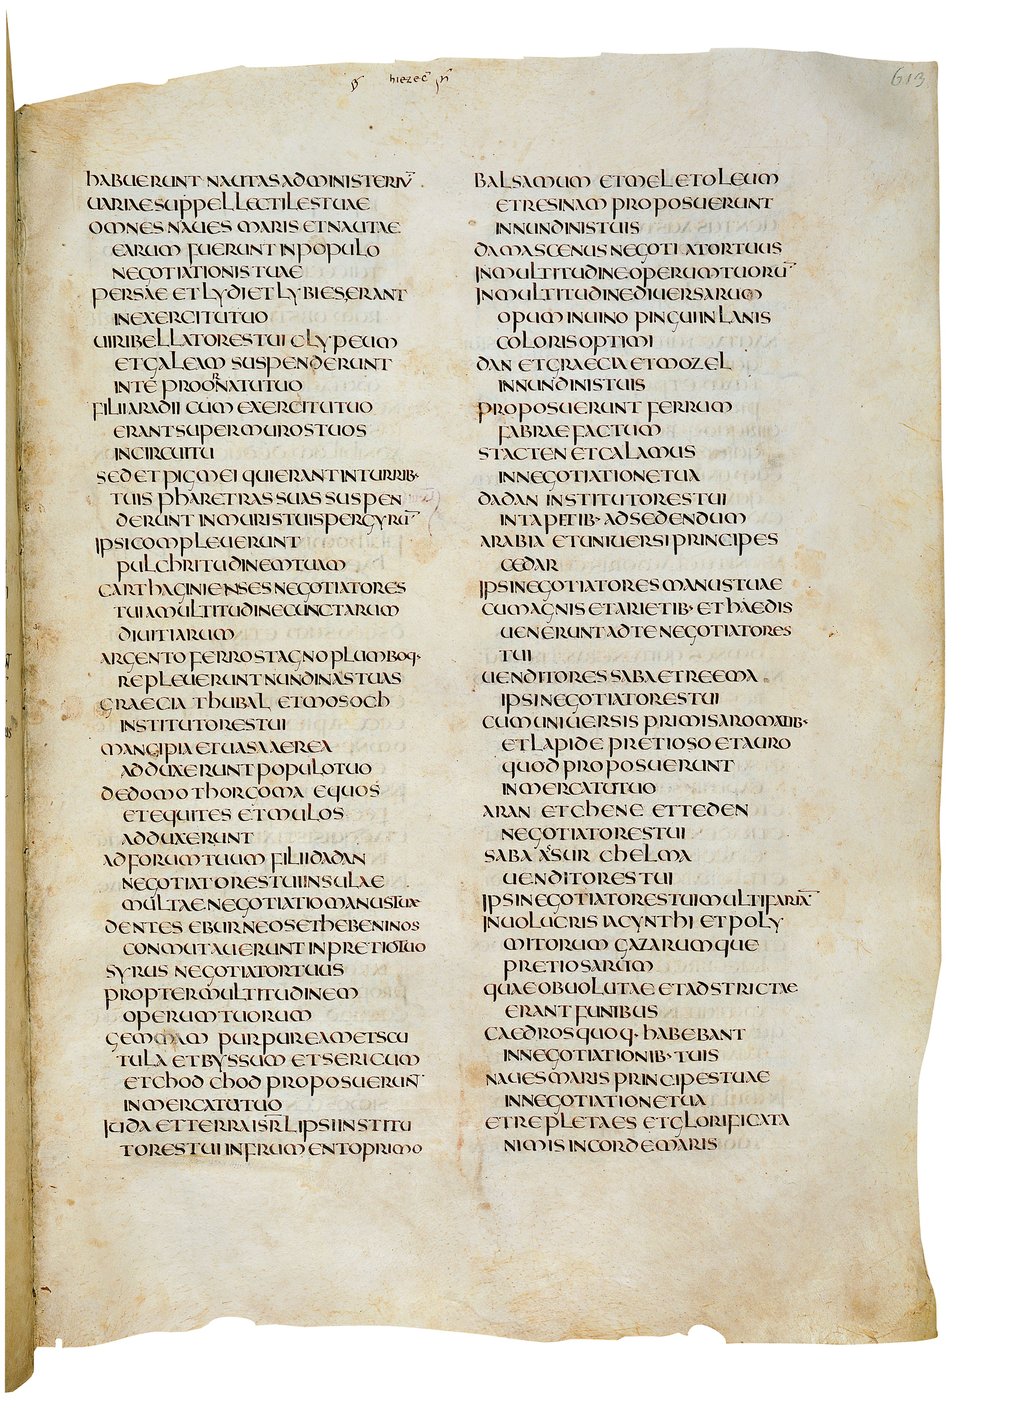 hiezec
613
HABUERUNT NAUTAS AD MINISTERIU̅
UARIAE SUPPELLECTILES TUAE
OMNES NAUES MARIS ET NAUTAE
EARUM FUERUNT IN POPULO
NEGOTIATIONIS TUAE
PERSAE ET LYDI ET LYBIES ERANT
IN EXERCITU TUO
UIRI BELLATORES TUI CLYPEUM
ET GALEAM SUSPENDERUNT
IN TE PRO ORNATU TUO
FILII ARADII CUM EXERCITU TUO
ERANT SUPER MUROS TUOS
IN CIRCUITU
SED ET PIGMEI QUI ERANT IN TURRIB·
TUIS PHARETRAS SUAS SUSPEN
DERUNT IN MURIS TUIS PER GYRU̅
IPSI COMPLEUERUNT
PULCHRITUDINEM TUAM
CARTHAGINIENSES NEGOTIATORES
TUI A MULTITUDINE CUNCTARUM
DIUITIARUM
ARGENTO FERRO STAGNO PLUMBOQ·
REPLEUERUNT NUNDINAS TUAS
GRAECIA THUBAL ET MOSOCH
INSTITUTORES TUI
MANCIPIA ET UASA AEREA
ADDUXERUNT POPULO TUO
DE DOMO THORGOMA EQUOS
ET EQUITES ET MULOS
ADDUXERUNT
AD FORUM TUUM FILII DADAN
NEGOTIATORES TUI INSULAE
MULTAE NEGOTIATIO MANUS TUAE
DENTES EBURNEOS ET HEBENINOS
CONMUTAUERUNT IN PRETIO TUO
SYRUS NEGOTIATOR TUUS
PROPTER MULTITUDINEM
OPERUM TUORUM
GEMMAM PURPURAM ET SCU
TULA ET BYSSUM ET SERICUM
ET CHOD CHOD PROPOSUERUN̅
IN MERCATU TUO
IUDA ET TERRA ISR̅L IPSI INSTITU
TORES TUI IN FRUMENTO PRIMO
BALSAMUM ET MEL ET OLEUM
ET RESINAM PROPOSUERUNT
IN NUNDINIS TUIS
DAMASCENUS NEGOTIATOR TUUS
IN MULTITUDINE OPERUM TUORU̅
IN MULTITUDINE DIUERSARUM
OPUM IN UINO PINGUI IN LANIS
COLORIS OPTIMI
DAN ET GRAECIA ET MOZEL
IN NUNDINIS TUIS
PROPOSUERUNT FERRUM
FABRAE FACTUM
STACTEN ET CALAMUS
IN NEGOTIATIONE TUA
DADAN INSTITUTORES TUI
IN TAPETIB· AD SEDENDUM
ARABIA ET UNIUERSI PRINCIPES
CEDAR
IPSI NEGOTIATORES MANUS TUAE
CUM AGNIS ET ARIETIB· ET HAEDIS
UENERUNT AD TE NEGOTIATORES
TUI
UENDITORES SABA ET REEMA
IPSI NEGOTIATORES TUI
CUM UNIUERSIS PRIMIS AROMATIB·
ET LAPIDE PRETIOSO ET AURO
QUOD PROPOSUERUNT
IN MERCATU TUO
ARAN ET CHENE ET TEDEN
NEGOTIATORES TUI
SABA ASSUR CHELMA
UENDITORES TUI
IPSI NEGOTIATORES TUI MULTIFARIA̅
INUOLUCRIS IACYNTHI ET POLY
MITORUM GAZARUMQUE
PRETIOSARUM
QUAE OBUOLUTAE ET ADSTRICTAE
ERANT FUNIBUS
CAEDROS QUOQ· HABEBANT
IN NEGOTIATIONIB· TUIS
NAUES MARIS PRINCIPES TUAE
IN NEGOTIATIONE TUA
ET REPLETA ES ET GLORIFICATA
NIMIS IN CORDE MARIS